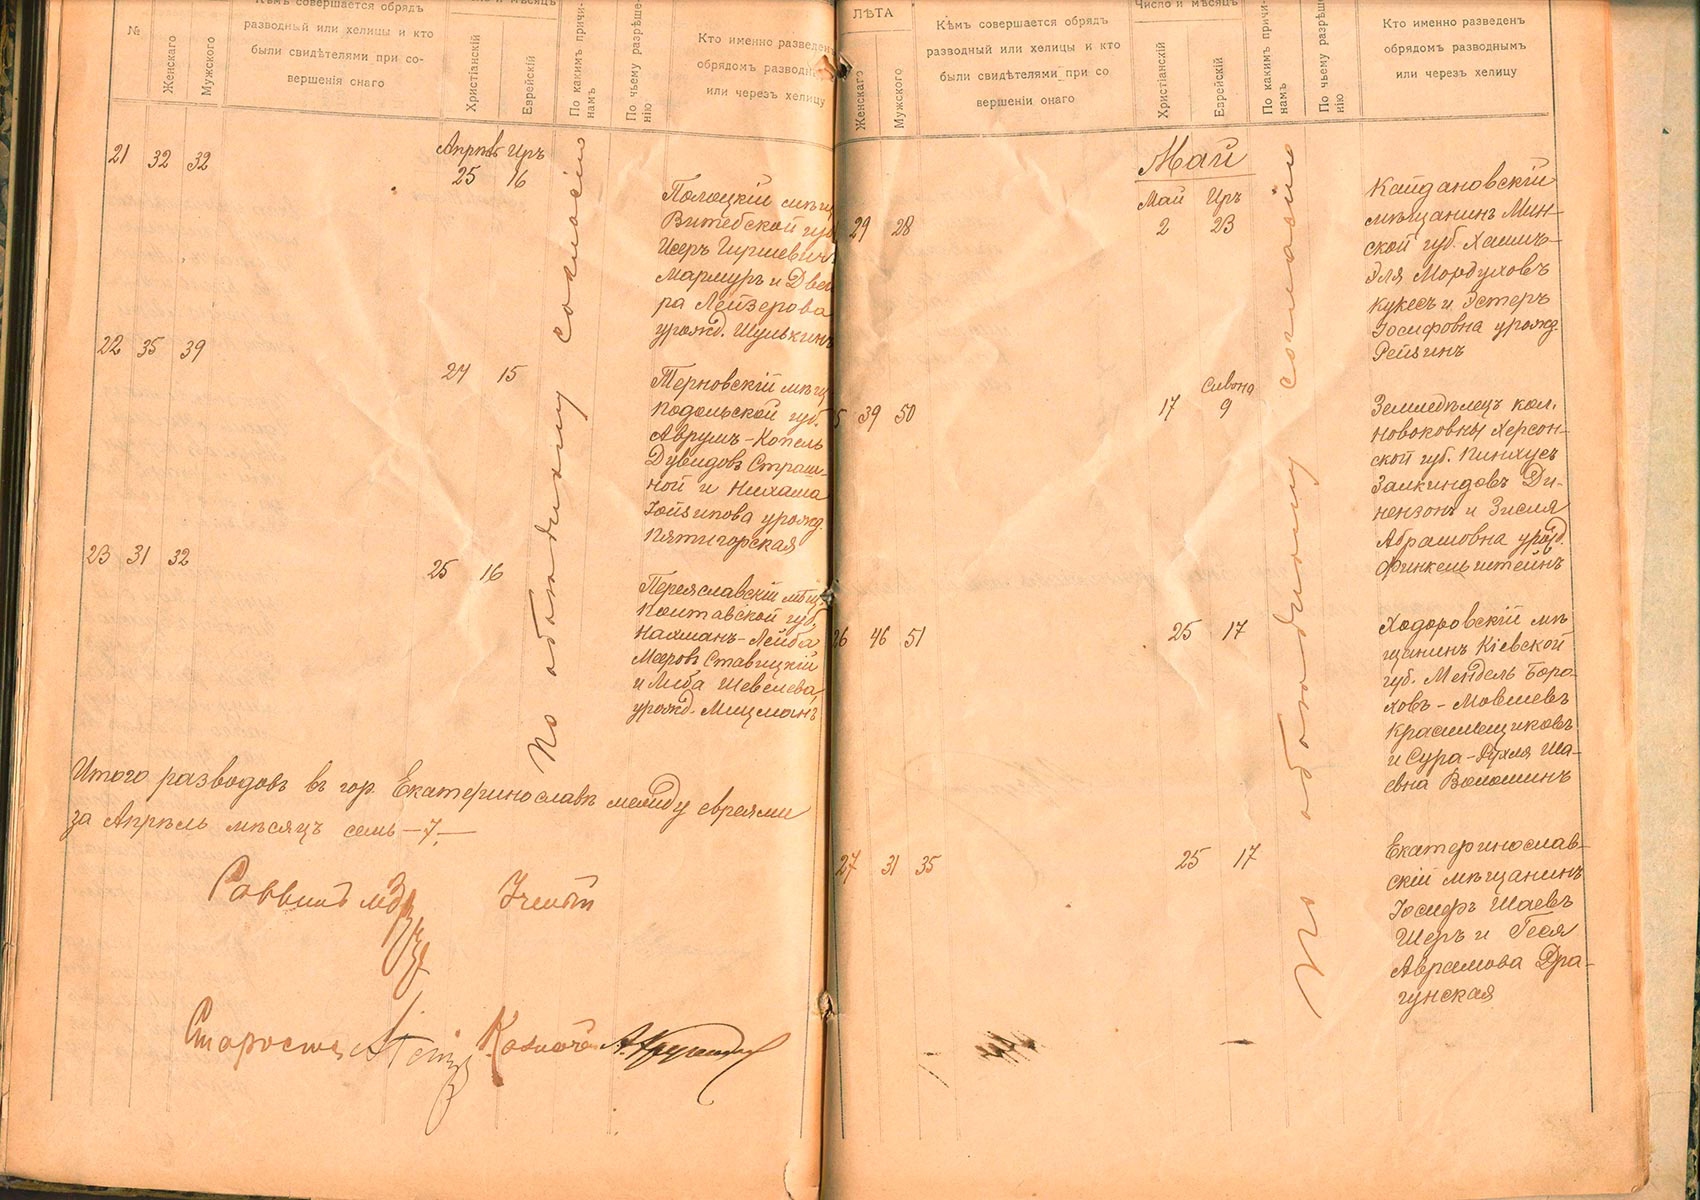 №
Женскаго
Мужского
Кѣмъ совершается обрядъ
разводный или хелицы и кто
были свидѣтелями при со-
вершенія онаго
Число и мѣсяцъ
Христіанскій
Еврейскій
По какимъ причи-
намъ
По чьему разрѣше-
нію
Кто именно разведенъ
обрядомъ разводн
или черезъ хелицу
21 32 32
Апрѣль Иръ
25 16
Полоцкій мѣщ
Витебской губ
Исеръ Гиршевичъ
Мармуръ и Двей
ра Лейзерова
урожд. Шулькинъ
22 35 39
24 15
Терновскій мѣщ
Подольской губ.
Аврумъ-Копель
Дувидовъ Страш-
ной и Нихама
Іойзипова урожд.
Пятигорская
23 31 32
25 16
Переяславскій мѣщ.
Полтавской губ.
Нахманъ-Лейба
Мееровъ Ставицкій
и Либа Шевелева,
урожд. Мицманъ
По обоюдному согласію
Итого разводовъ въ гор. Екатеринославѣ между евреями
за Апрѣль мѣсяцъ семь -7.-
Раввинъ
Староста
Казначей
ЛѢТА
Женскаго
Мужского
Кѣмъ совершается обрядъ
разводный или хелицы и кто
были свидѣтелями при со
вершеніи онаго
Число и мѣсяцъ
Христіанскій
Еврейскій
По какимъ причи-
намъ
По чьему разрѣше-
нію
Кто именно разведенъ
обрядомъ разводнымъ
или черезъ хелицу
Май
29 28
Май Иръ
2 23
Кайдановскій
мѣщанинъ Мин-
ской губ.
Мордуховъ
Кукесъ и Эстеръ
Іосифовна урожд.
Рейзинъ
5 39 50
Сивона
17 9
Земледѣлецъ кол.
Херсон-
ской губ. Пинхусъ
Залкиндовъ Ди-
нензонъ и Зисля
Абрамовна урожд.
Финкельштейнъ
26 46 51
25 17
Ходоровскій мѣ
щанинъ Кіевской
губ. Мендель Боро-
ховъ-Мовшевъ
Красильщиковъ
и Сура-Рухля Ша-
евна Волошинъ
27 31 35
25 17
Екатеринослав-
скій мѣщанинъ
Іосифъ Шаевъ
Шеръ и Геся
Аврамова Дра-
гунская
По обоюдному согласію